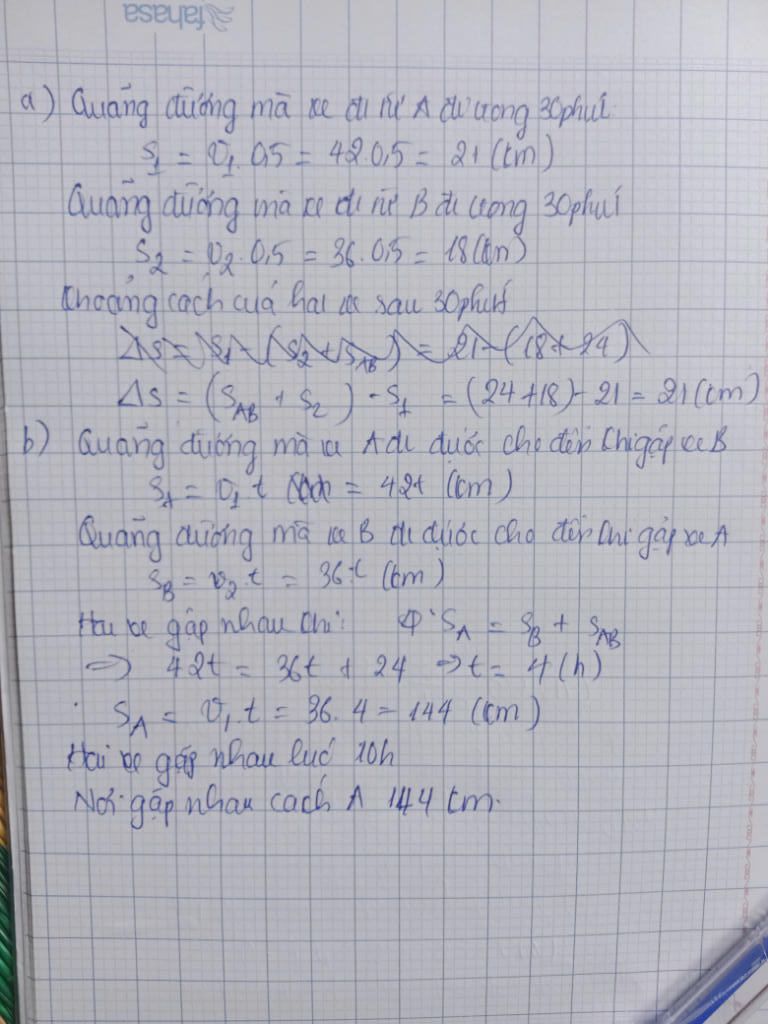 fahasa
a) Quãng đường mà xe đi từ A đi trong 30 phút
S₁ = v₁. 0,5 = 42.0,5 = 21 (km)
Quãng đường mà xe đi từ B đi trong 30 phút
S₂ = v₂. 0,5 = 36.0,5 = 18 (km)
Khoảng cách của hai xe sau 30 phút
ΔS = S₁ - (S₂ + S_AB) = 21 - (18 + 24)
ΔS = (S_AB + S₂) - S₁ = (24 + 18) - 21 = 21 (km)
b) Quãng đường mà xe A đi được cho đến khi gặp xe B
S_A = v₁ t = 42t (km)
Quãng đường mà xe B đi được cho đến khi gặp xe A
S_B = v₂.t = 36.t (km)
Hai xe gặp nhau khi: S_A = S_B + S_AB
=> 42t = 36t + 24 => t = 4 (h)
S_A = v₁.t = 36.4 = 144 (km)
Hai xe gặp nhau lúc 10h
Nơi gặp nhau cách A 144 km.